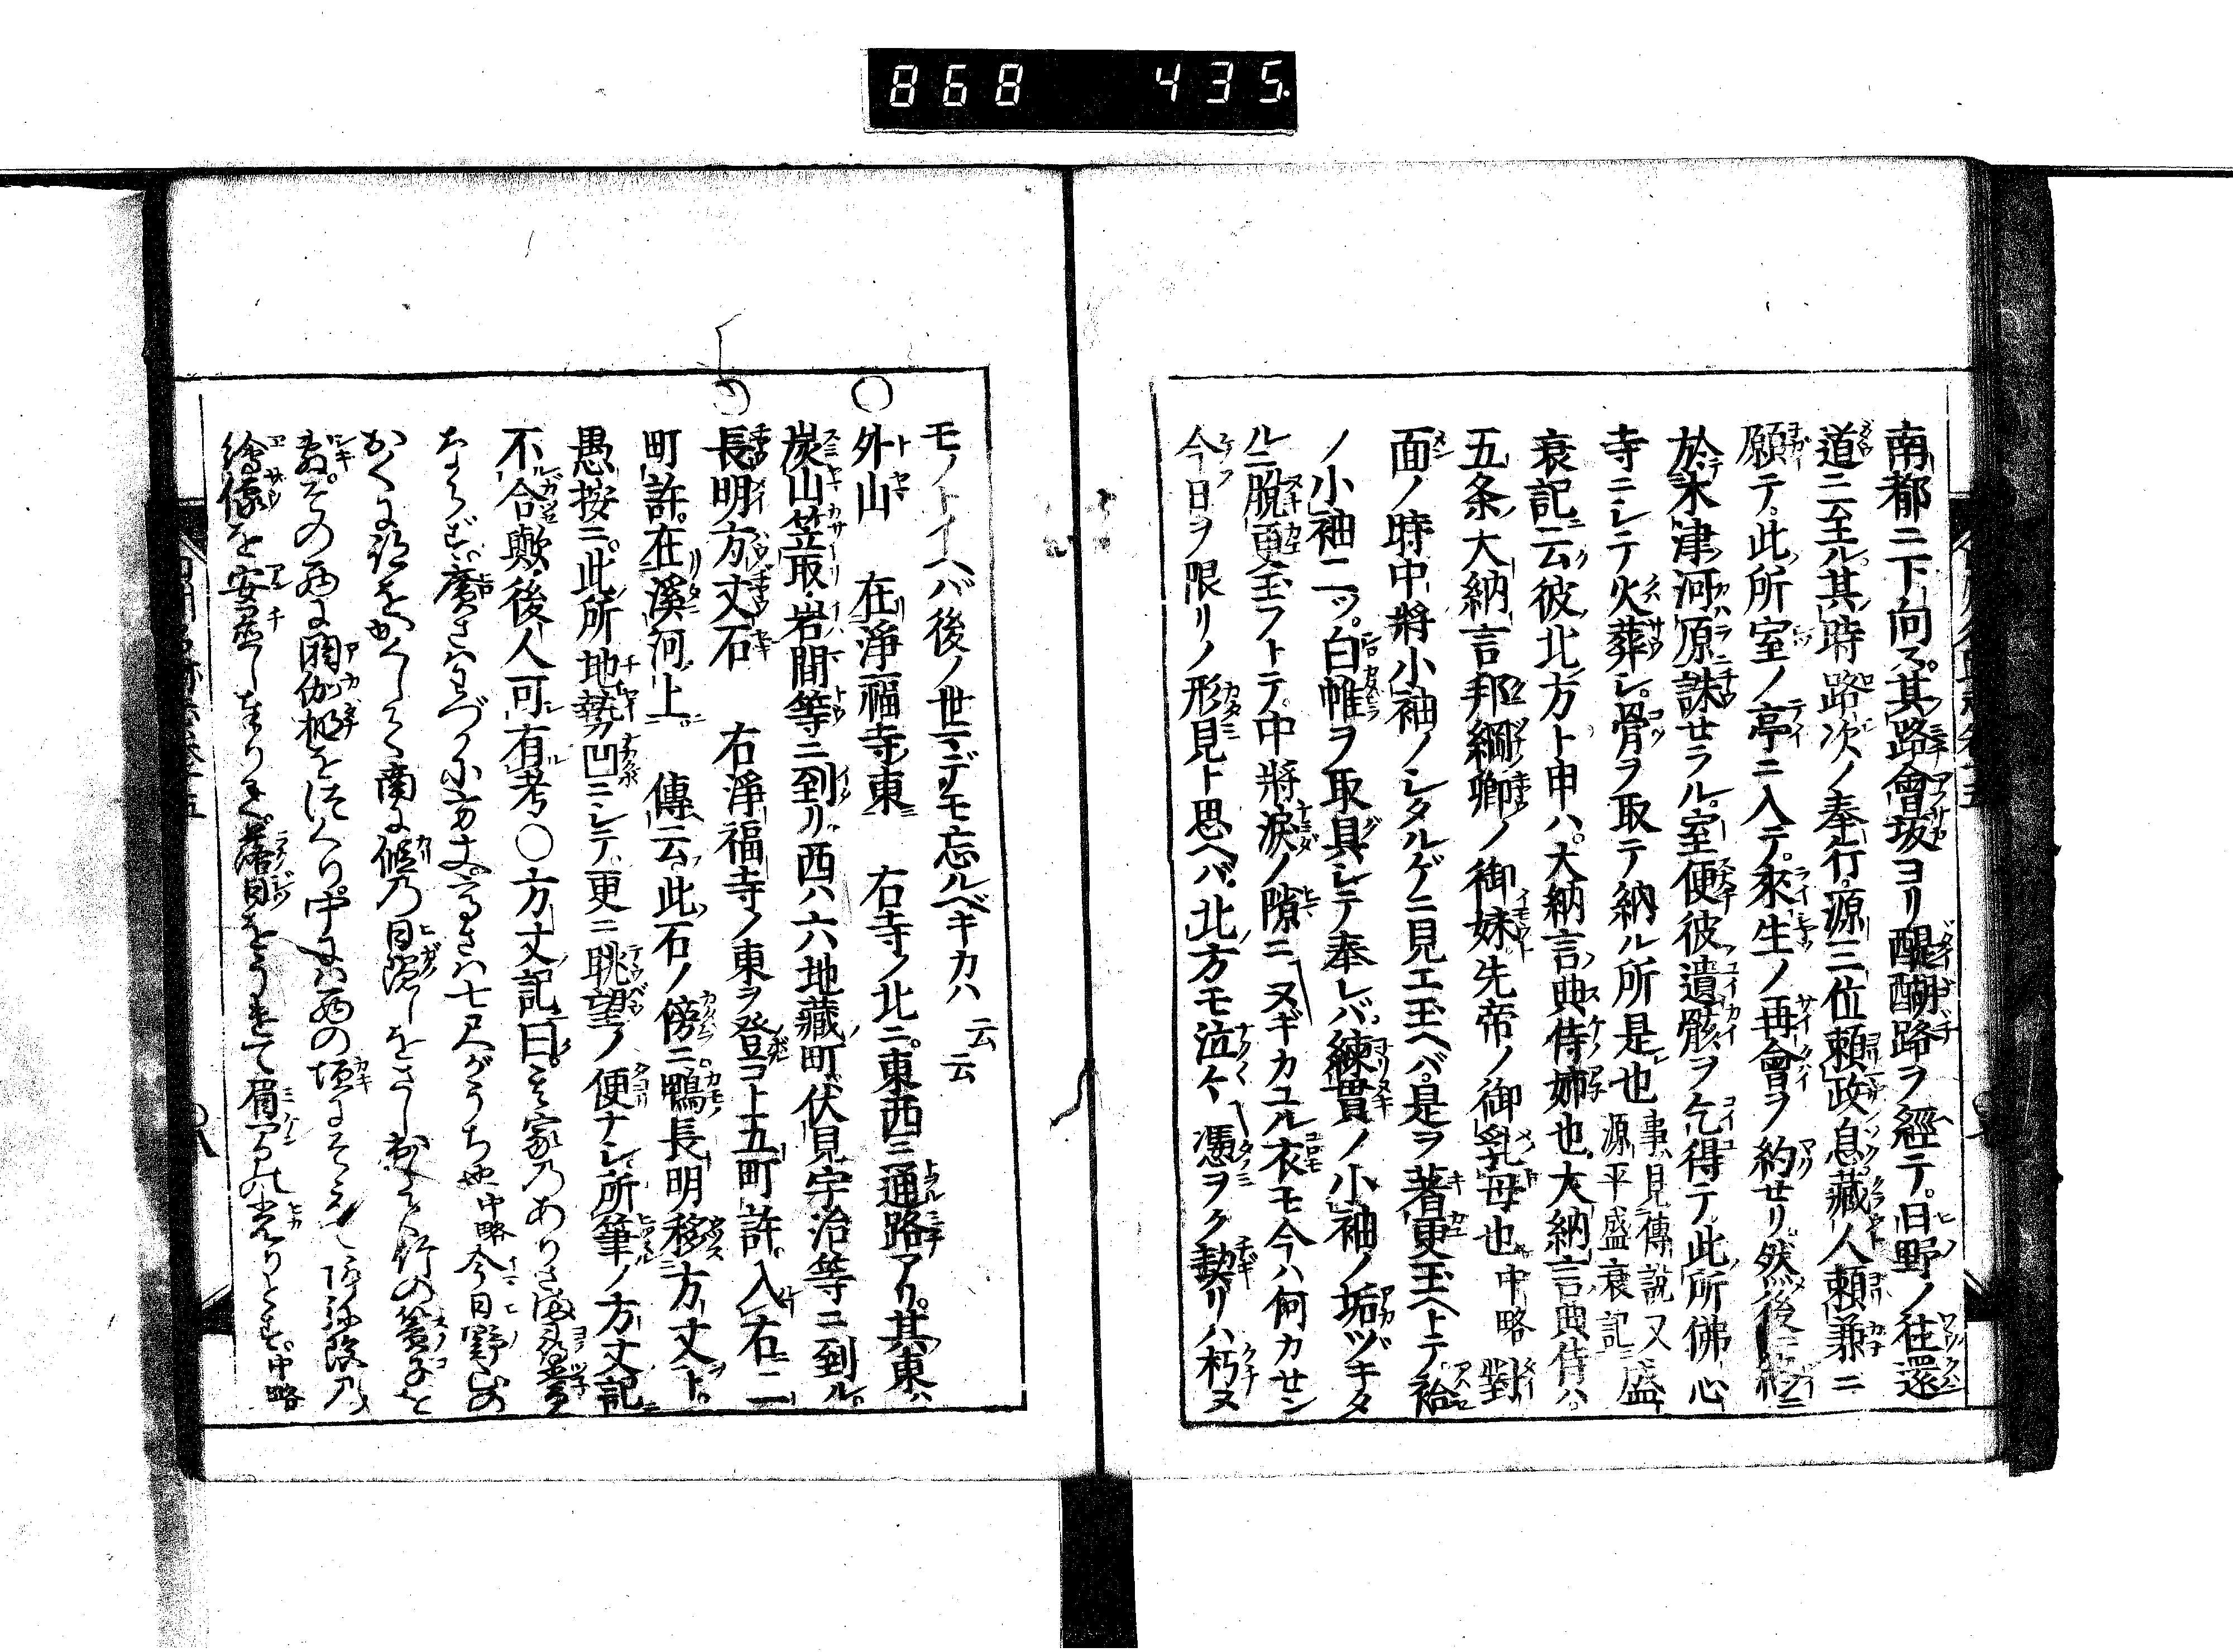 868 435
南都ニ下向ス。其路會坂ヨリ醍醐路ヲ經テ。日野ノ往還
道ニ至ル其時路次ノ奉行。源三位頼政息藏人頼兼ニ
願テ。此所室ノ亭ニ入テ。來生ノ再會ヲ約セリ。然後
於木津河原誅セラル。室便彼遺骸ヲ乞得テ。此所佛心
寺ニシテ火葬シ。骨ヲ取テ納ル所是也 事見傳説又 源平盛衰記 盛
衰記云彼北方ト申ハ。大納言典侍姉也。大納言典侍ハ。
五条大納言邦綱卿ノ御妹先帝ノ御乳母也 中略 對
面ノ時中將小袖ノシタルゲニ見エ玉ヘバ。是ヲ著更玉ヘトテ袷
ノ小袖二ツ。白帷ヲ取具シテ奉レバ。練貫ノ小袖ノ垢ヅキタ
ルニ脱更玉フトテ。中將涙ノ隙ニヌギカユル衣モ今ハ何カセン
今日ヲ限リノ形見ト思ヘバ。北方モ泣々憑ヲク契リハ朽ヌ
モノトイヘバ後ノ世マデモ忘ルベキカハ云云
○外山 在淨福寺東 右寺ノ北ニ。東西ニ通路アリ。其東ハ
炭山笠取岩間等ニ到リ。西ハ六地藏町伏見宇治等ニ到ル。
○長明方丈石 右淨福寺ノ東ヲ登コト五町許。入右二
町許。在溪河上 傳云此石ノ傍ニ。鴨長明移方丈ト。
愚按ニ。此所地勢凹ニシテ。更ニ眺望ノ便ナシ所筆ノ方丈記
不合歟。後人可有考○方丈記曰。その家乃ありさま
ならず。廣さはわづかに方丈。高さは七尺がうち也 中略 今日野山の
おくに跡をかくして南に假乃日隠しをさし出して竹の簀子を
敷。その西に閼伽棚をつくり。中には西の垣にそへて阿弥陀乃
繪像を安置したてまつりて。落日をうけて眉間のひかりとす。中略